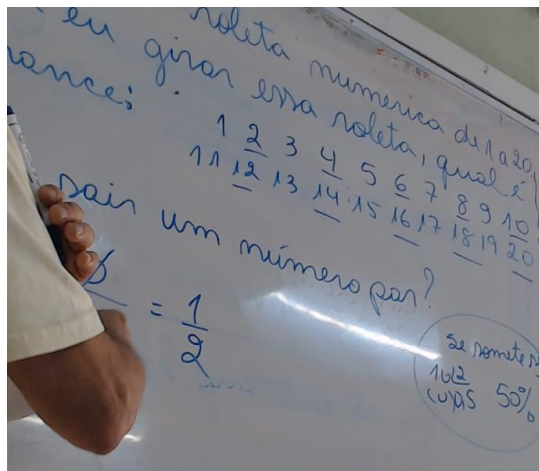 roleta numerica de 1 a 20,
eu girar essa roleta, qual é
1 2 3 4 5 6 7 8 9 10
11 12 13 14 15 16 17 18 19 20
sair um número par?
= 1/2
se somete
1 2
50%